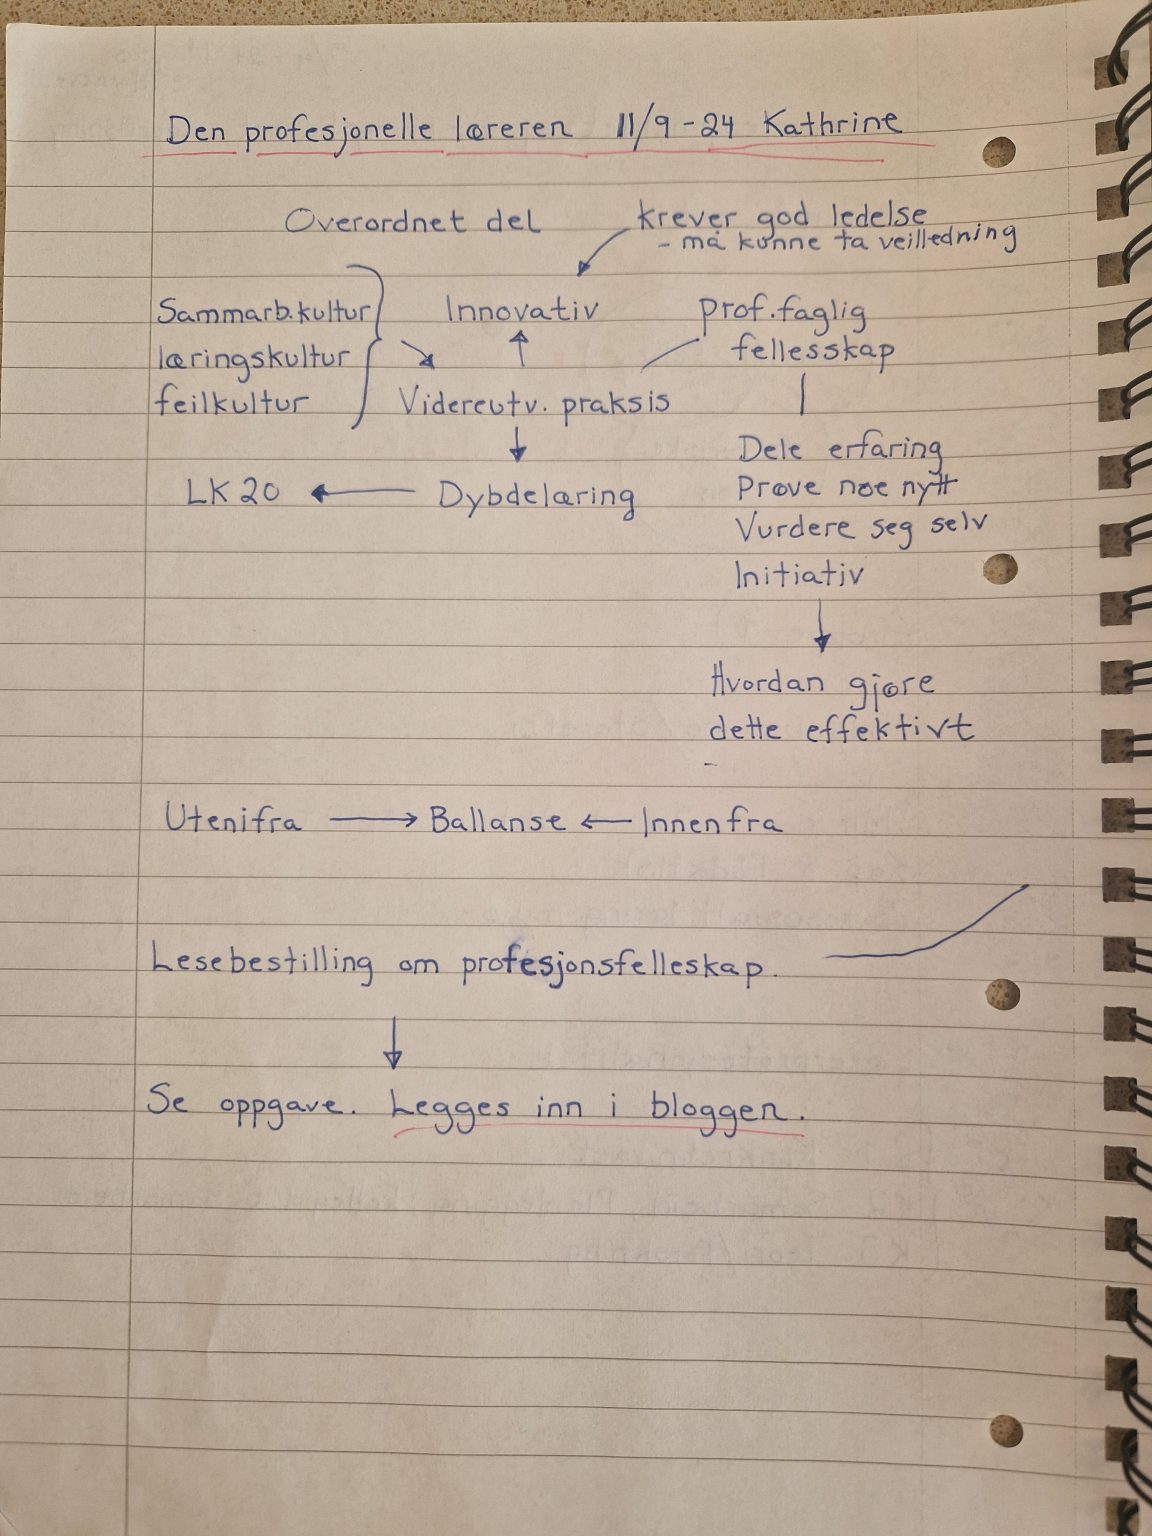 Den profesjonelle læreren 11/9-24 Kathrine
Overordnet del
krever god ledelse
- må kunne ta veilledning
Sammarb.kultur
læringskultur
feilkultur
Innovativ
Videreutv. praksis
Dybdelæring
LK20
prof.faglig
fellesskap
Dele erfaring
Prøve noe nytt
Vurdere seg selv
Initiativ
Hvordan gjøre
dette effektivt
-
Utenifra → Ballanse ← Innenfra
Lesebestilling om profesjonsfelleskap.
Se oppgave. Legges inn i bloggen.